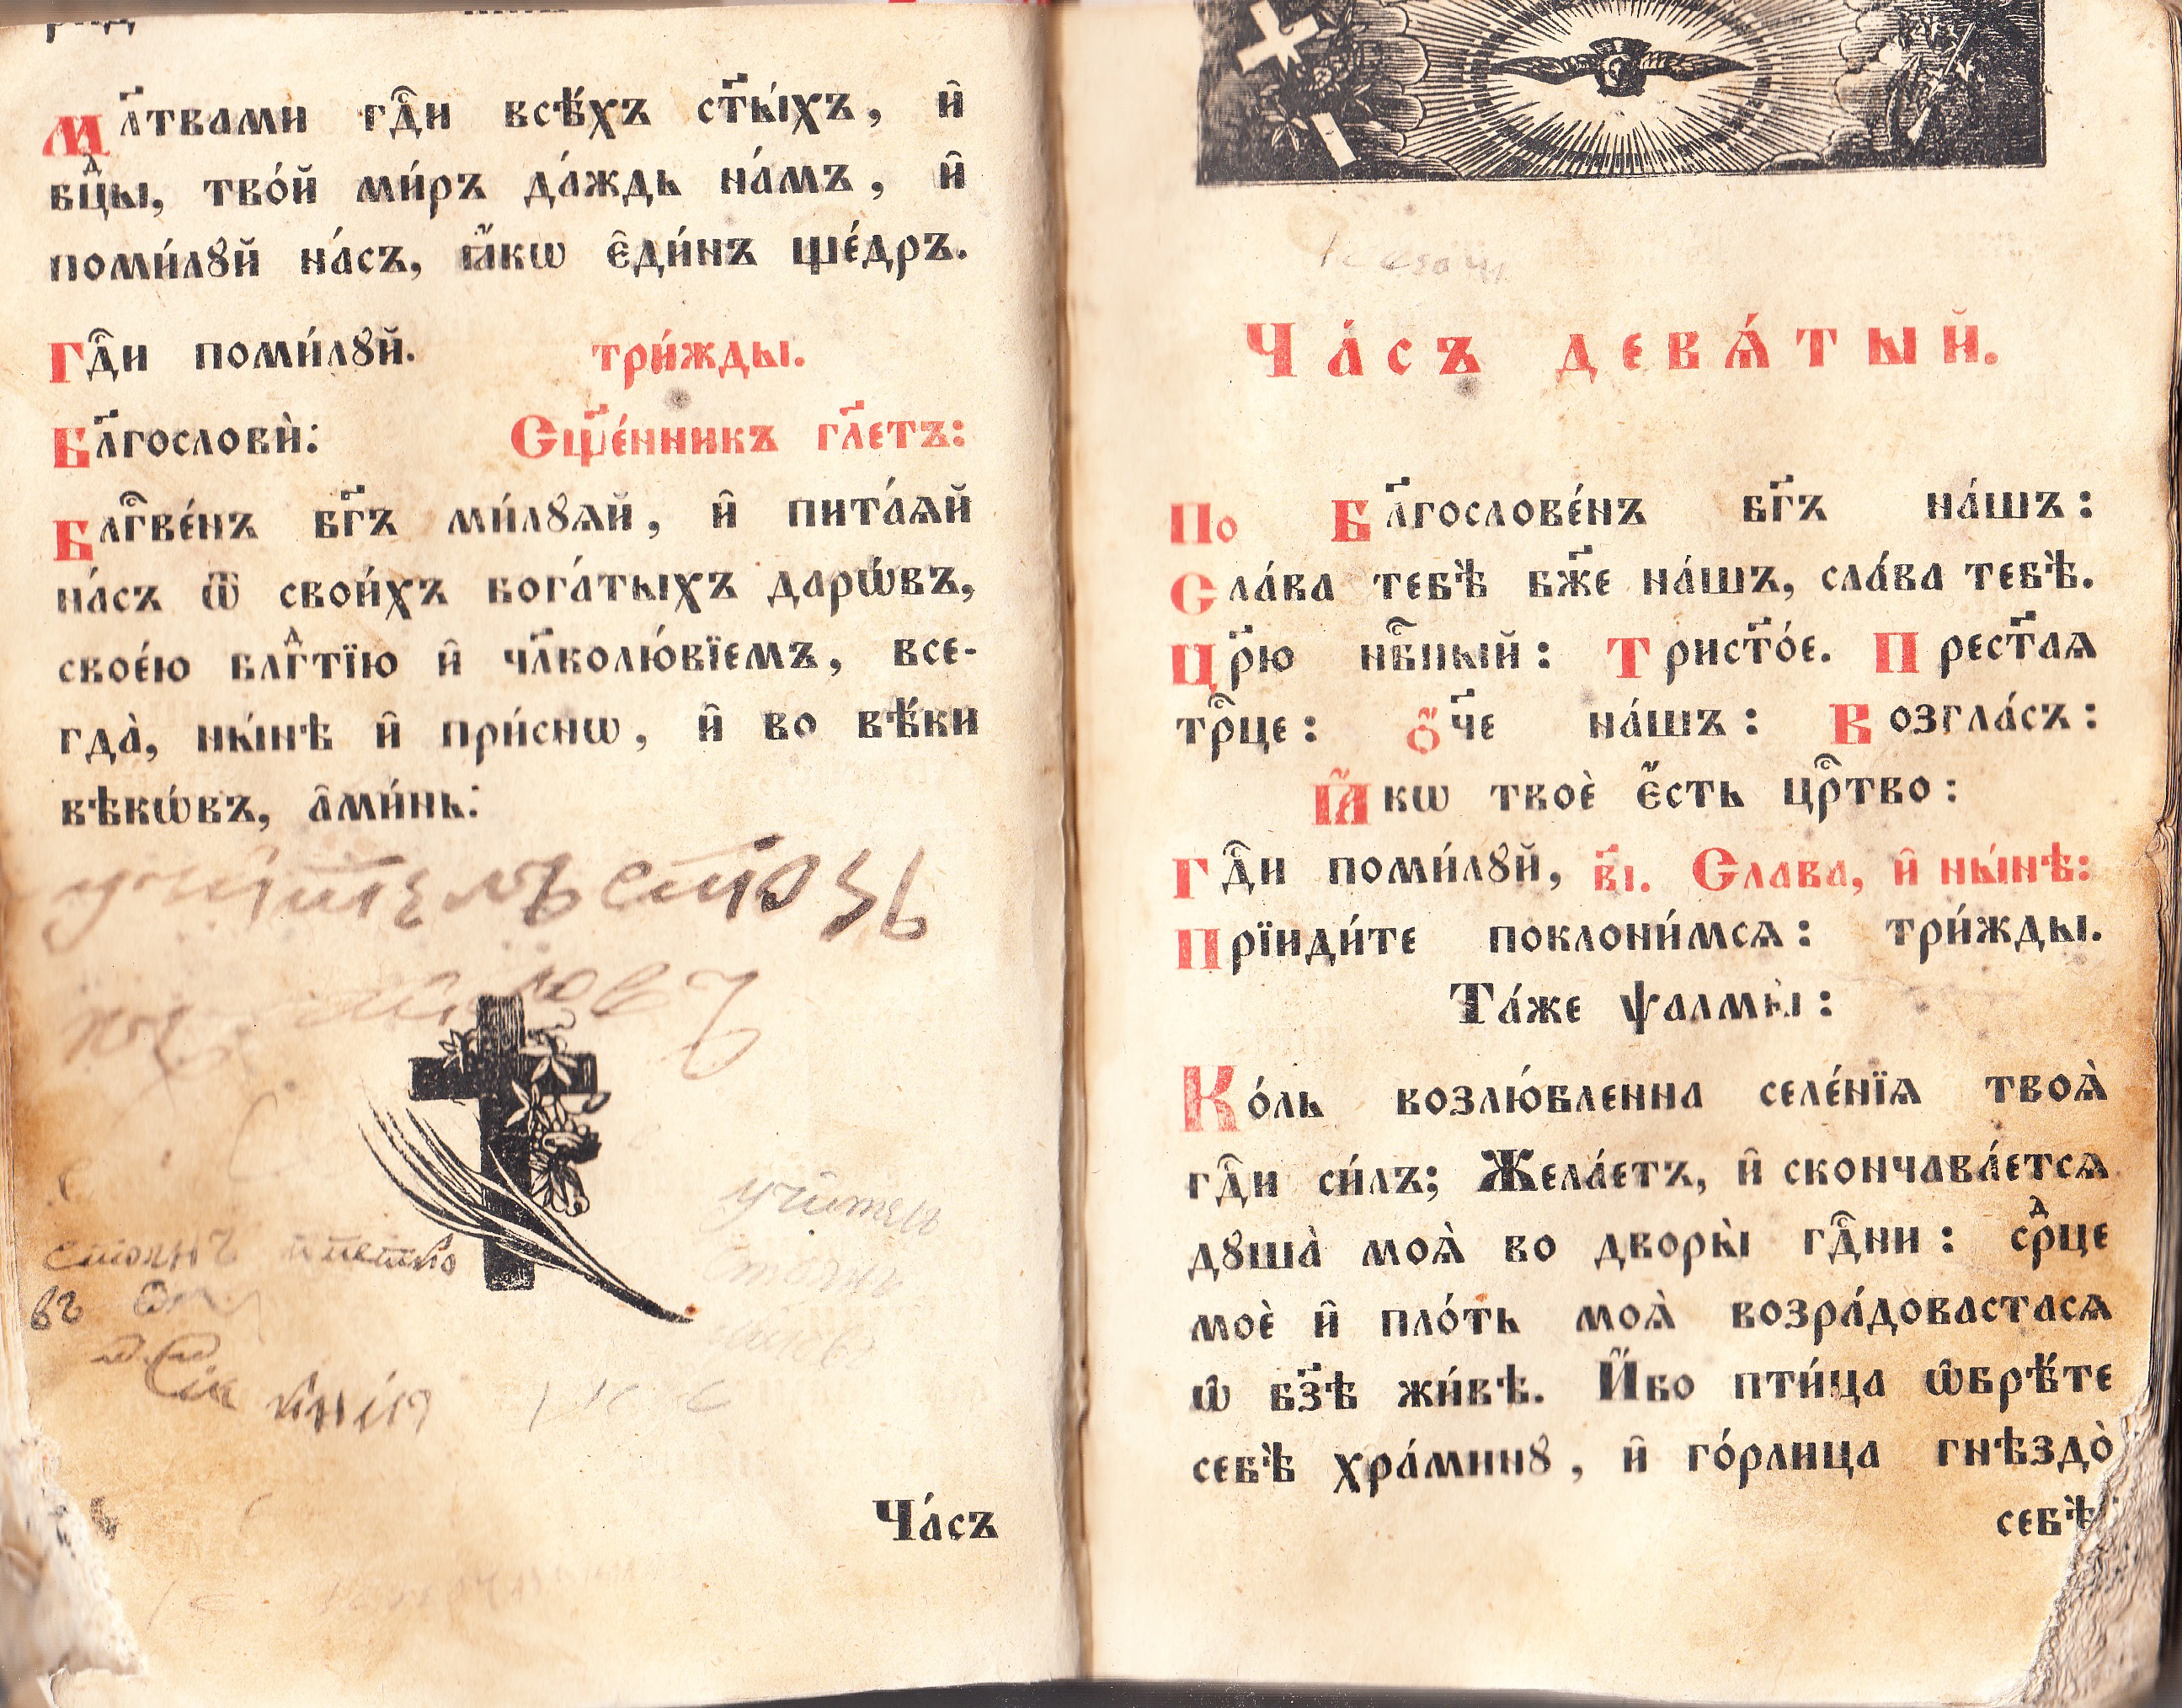 М л҃твами гдⷭ҇и всѣ́хъ ст҃ы́хъ, и҆
бцⷣы, тво́й ми́ръ да́ждь на́мъ, и҆
поми́лꙋй на́съ, ꙗ҆́кѡ є҆ди́нъ ще́дръ.
Гдⷭ҇и поми́лꙋй. три́жды.
Бл҃гословѝ: Сщ҃е́нникъ гл҃етъ:
Блгⷭ҇ве́нъ бг҃ъ ми́лꙋѧй, и҆ пита́ѧй
на́съ ѿ свои́хъ бога́тыхъ дарѡ́въ,
свое́ю блгⷣтїю и҆ чл҃колю́бїемъ, все-
гда̀, ны́нѣ и҆ при́снѡ, и҆ во вѣ́ки
вѣкѡ́въ, а҆ми́нь:
Ча́съ
Ча́съ девѧ́тый.
По Бл҃гослове́нъ бг҃ъ на́шъ:
Сла́ва тебѣ̀ бж҃е на́шъ, сла́ва тебѣ̀.
Цр҃ю нбⷭ҇ный: Трист҃о́е. Прест҃аѧ
трⷪ҇це: Ѻ҆́ч҃е на́шъ: Возгла́съ:
Ꙗ҆́кѡ твоѐ є҆́сть црⷭ҇тво:
Гдⷭ҇и поми́лꙋй, в҃і. Слава, и҆ ны́нѣ:
Прїиди́те поклони́мсѧ: три́жды.
Та́же ѱалмы̀:
Ко́ль возлю́бленна селе́нїѧ твоѧ̀
гдⷭ҇и си́лъ; Жела́етъ, и҆ скончава́етсѧ
дꙋша̀ моѧ̀ во дворы̀ гдⷭ҇ни: срⷣце
моѐ и҆ пло́ть моѧ̀ возра́довастасѧ
ѡ҆ бз҃ѣ жи́вѣ. И҆́бо пти́ца ѡ҆брѣ́те
себѣ̀ хра́минꙋ, и҆ го́рлица гнѣздо̀
себѣ̀